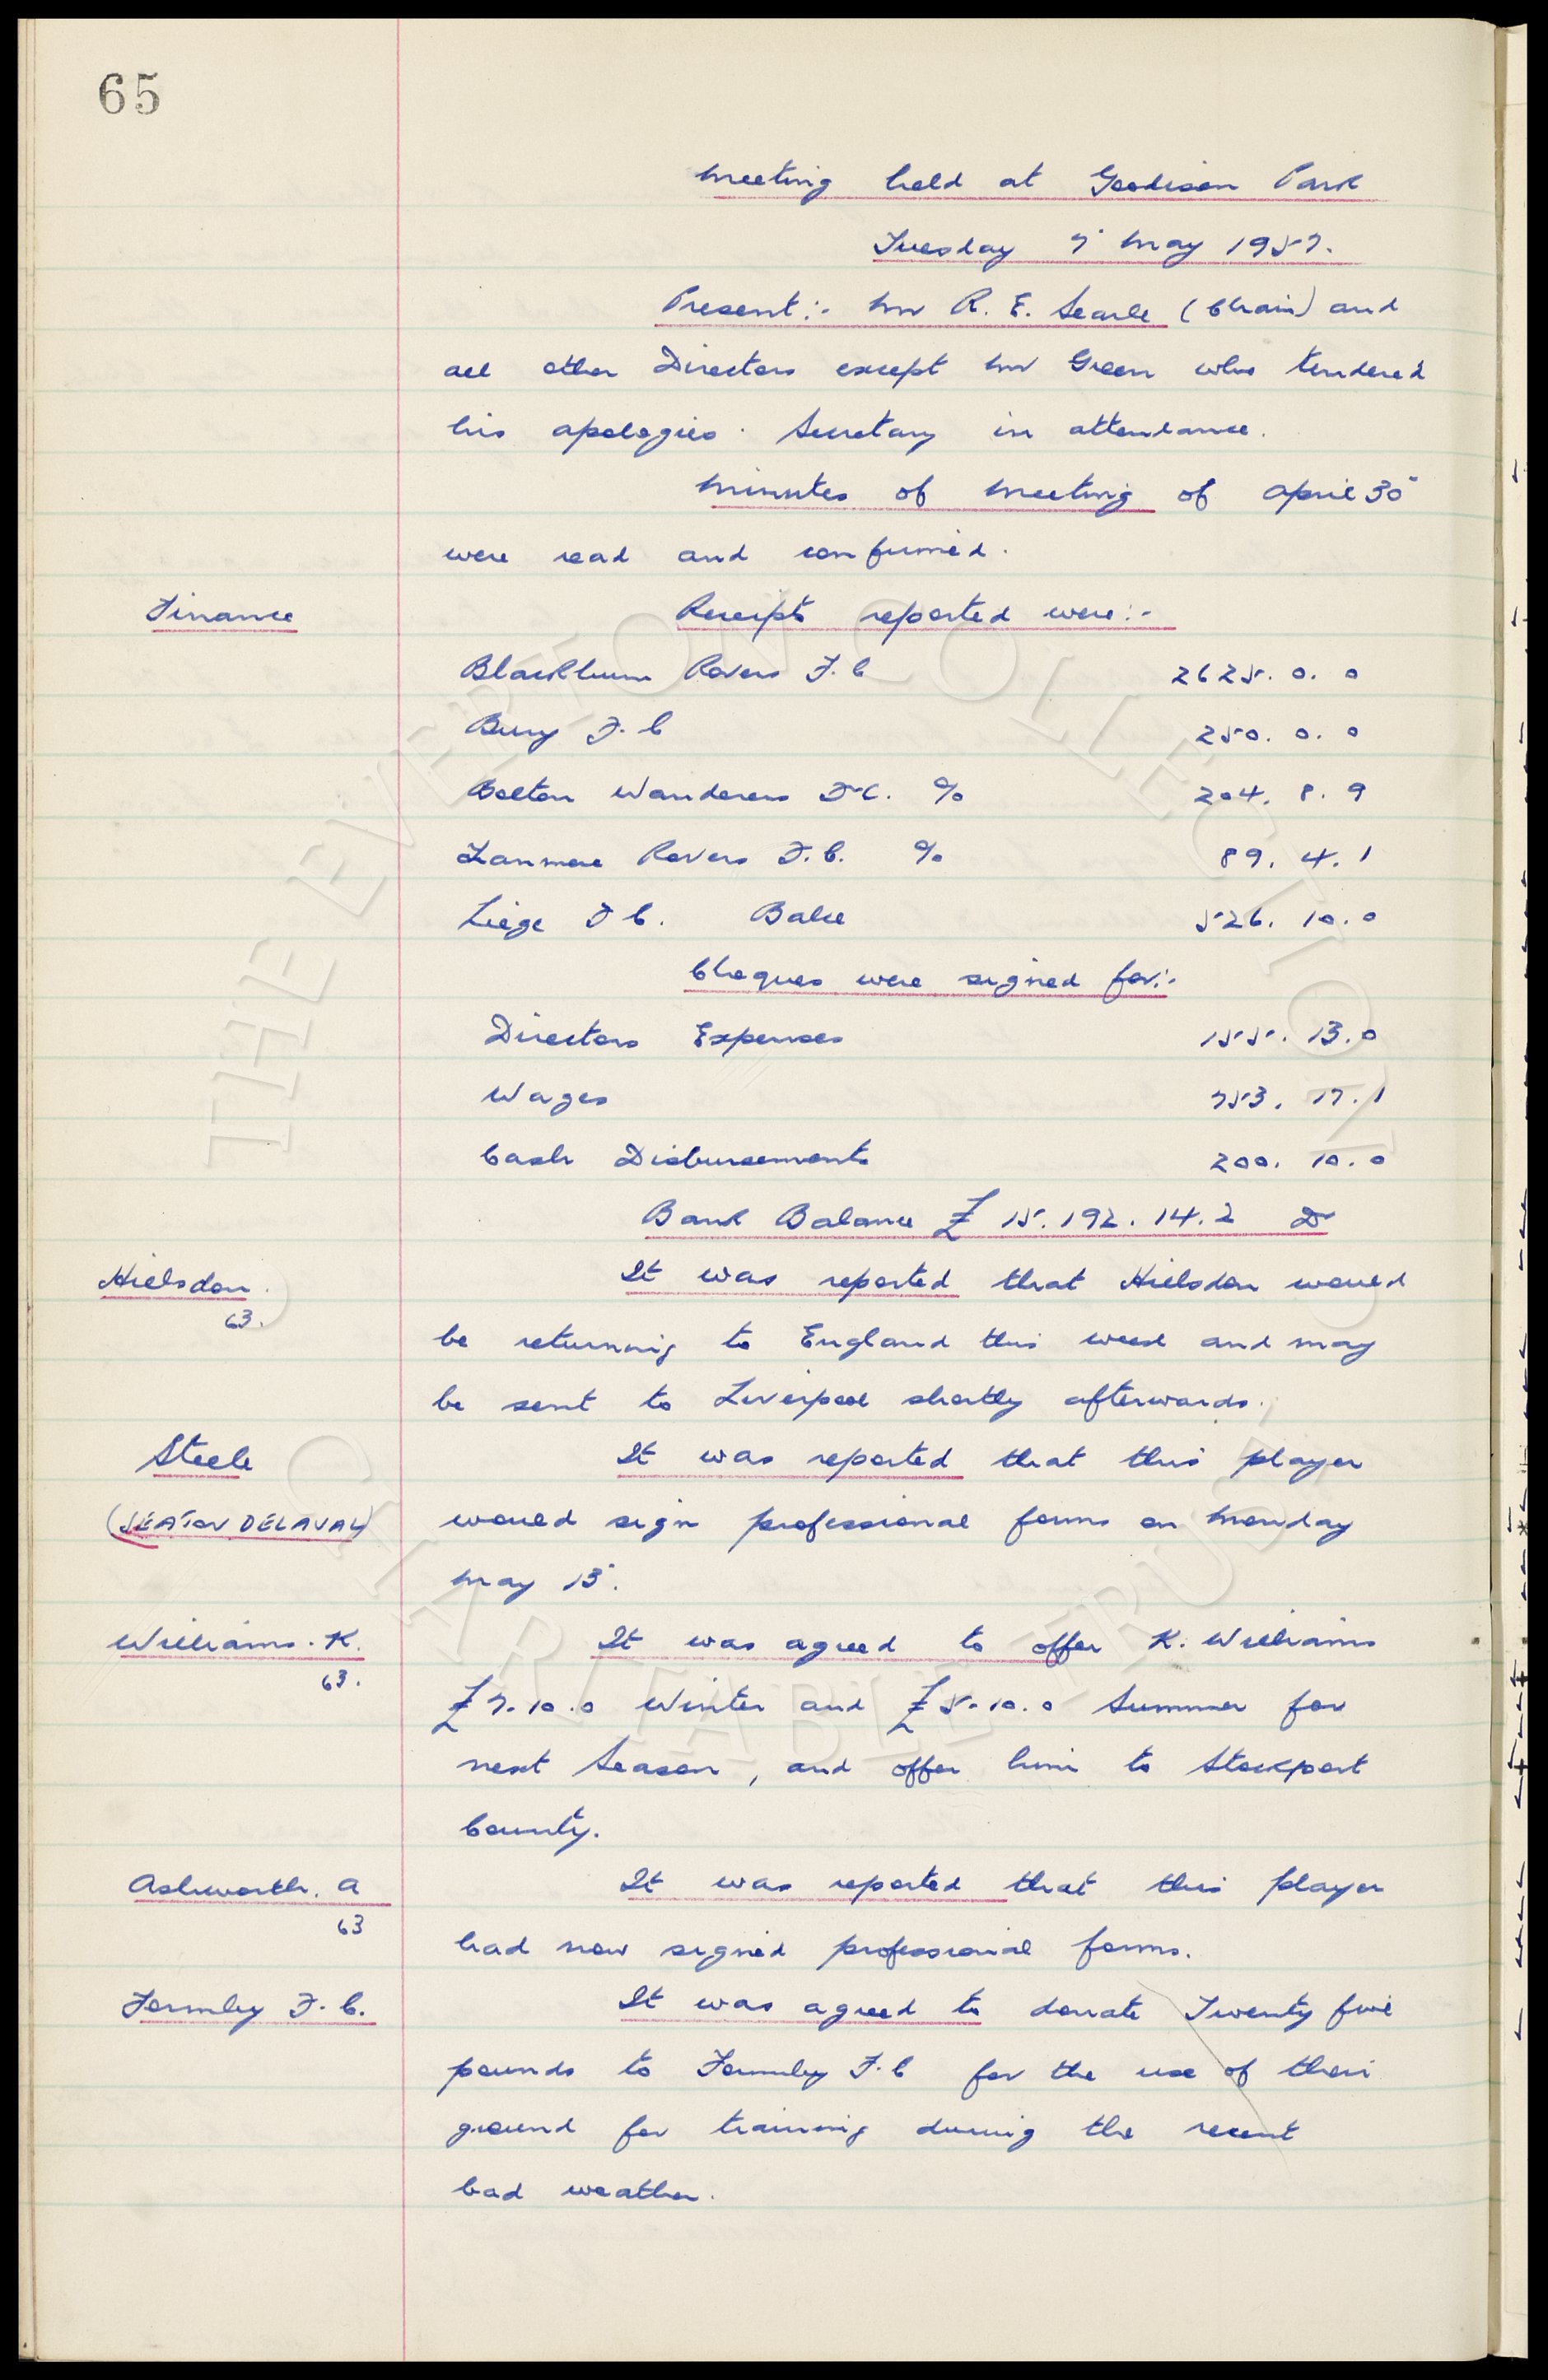 65
Meeting held at Goodison Park
Tuesday 7" May 1957.
Present:- Mr R. E. Searle (Chair) and
all other Directors except Mr Green who tendered
his apologies. Secretary in attendance.
Minutes of Meeting of April 30"
were read and confirmed.
Finance
Receipts reported were:-
Blackburn Rovers F.C 2625. 0. 0
Bury F.C 250. 0. 0
Bolton Wanderers F.C. % 204. 8. 9
Tranmere Rovers F.C. % 89. 4. 1
Liege F C. Balce 526. 10. 0
Cheques were signed for:-
Directors Expenses 155. 13. 0
Wages 753. 17. 1
Cash Disbursements 200. 10. 0
Bank Balance £ 15.192.14.2 Dr
Hielsdon.
63.
It was reported that Hielsdon would
be returning to England this week and may
be sent to Liverpool shortly afterwards.
Steele
(SEATON DELAVAL)
It was reported that this player
would sign professional forms on Monday
May 13".
Williams. K.
63.
It was agreed to offer K. Williams
£7.10.0 Winter and £5.10.0 Summer for
next Season, and offer him to Stockport
County.
Ashworth. A
63
It was reported that this player
had now signed professional forms.
Formby F.C.
It was agreed to donate Twenty five
pounds to Formby F.C for the use of their
ground for training during the recent
bad weather.
THE EVERTON COLLECTION
CHARITABLE TRUST